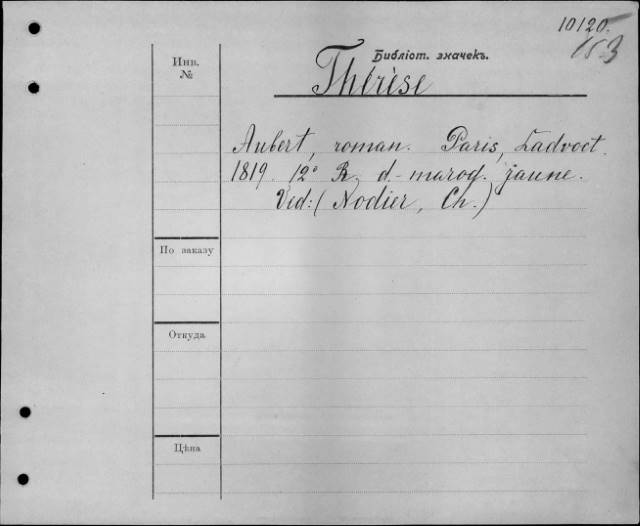 10120.
153
Инв.
№
Библіот. значекъ.
Thérèse
Aubert, roman. Paris, Ladvoct.
1819. 12° R, d.-maroq. jaune.
Ved: (Nodier, Ch.)
По заказу
Откуда
Цѣна